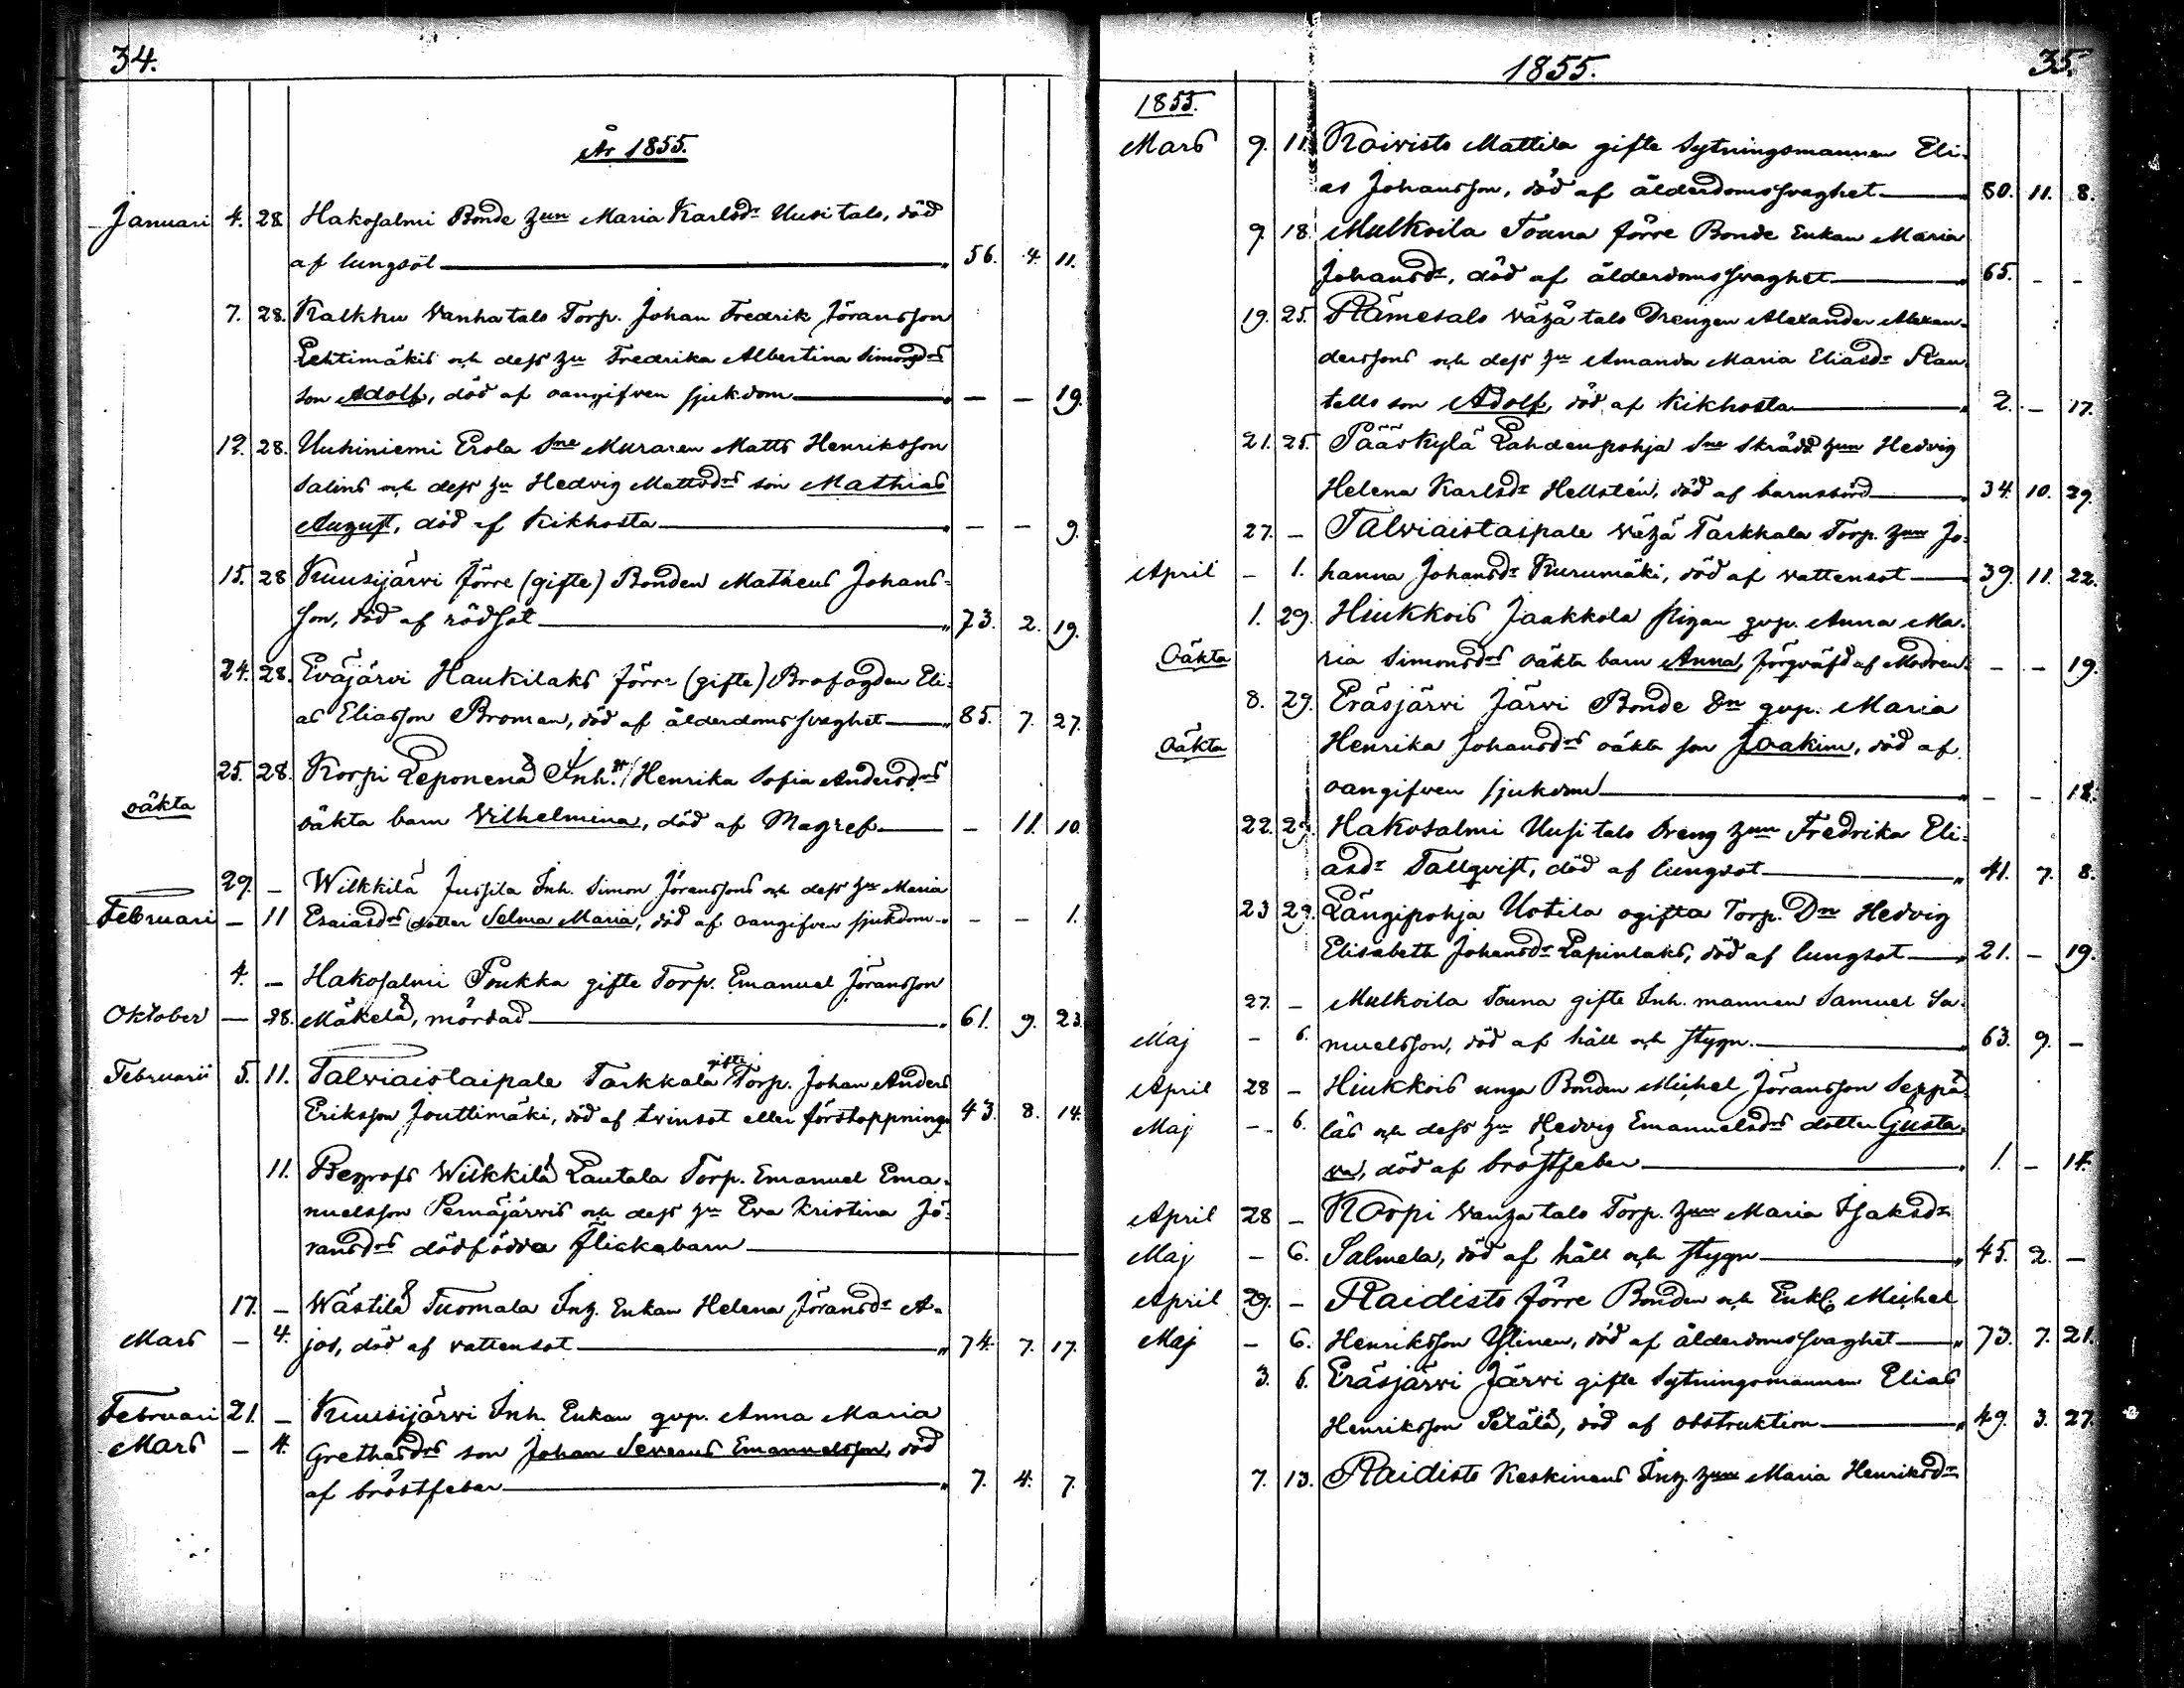 34.
År 1855.
Januari 4. 28. Hakosalmi Bonde hun Maria Karlsdr Uusitalo, död
af lungsot 56. 4. 11.
7. 28. Kalkku Wanhatalo Torp. Johan Fredrik Jöransson
Lehtimäkis och dess hu Fredrika Albertina Simonsdrs
son Adolf, död af oangifven sjukdom — — 19.
12. 28. Uuhiniemi Erola Sne Muraren Matts Henriksson
Salins och dess hu Hedvig Mattsdrs son Mathias
August, död af Kikhosta — — 9.
15. 28 Kuusijärvi förre (gifte) Bonden Matheus Johans=
son, död af rödsot 73. 2. 19.
24. 28. Eväjärvi Haukilaks förre (gifte) Brofogden Eli=
as Eliasson Broman, död af ålderdomssvaghet 85. 7. 27.
25. 28. Korpi Leponens Inh. Henrika Sofia Andersdrs
oäkta
oäkta barn Vilhelmina, död af Magref — 11. 10.
29. — Wilkkilä Jussila Inh. Simon Jöranssons och dess hu Maria
Februari — 11 Esaiasdrs dotter Selma Maria, död af oangifven sjukdom — — 1.
4. — Hakosalmi Poukka gifte Torp. Emanuel Jöransson
Oktober — 28. Mäkelä, mördad 61. 9. 23.
Februarii 5. 11. Talviaistaipale Tarkkala gifte Torp. Johan Anders
Eriksson Jouttimäki, död af tvinsot eller förstoppning 43. 8. 14.
11. Begrofs Wilkkilä Lautala Torp. Emanuel Ema=
nuelsson Pernäjärvis och dess hu Eva Kristina Jö=
ransdrs dödfödda flickebarn
17. — Wästilä Tuomala Inh. Enkan Helena Jöransdr A=
Mars — 4. jos, död af vattensot 74. 7. 17.
Februari 21. — Kuusijärvi Inh. Enkan qvp. Anna Maria
Mars — 4. Grethasdrs son Johan Severus Emanuelsson, död
af bröstfeber 7. 4. 7.
1855. 35.
1855.
Mars 9. 11. Koivisto Mattila gifte Sytningsmannen Eli=
as Johansson, död af ålderdomssvaghet 80. 11. 8.
9. 18. Mulkoila Touna förre Bonde Enkan Maria
Johansdr, död af ålderdomssvaghet 65. — —
19. 25. Rämesalo Vähä talo Drengen Alexander Alexan=
derssons och dess hu Amanda Maria Eliasdr Ran=
tells son Adolf, död af Kikhosta 2. — 17.
21. 25. Pääskylä Lahdenpohja Sne Skrädd hun Hedvig
Helena Karlsdr Hellstén, död af barnsbörd 34. 10. 29.
27. — Talviaistaipale Wähä Tarkkala Torp. hun Jo=
April — 1. hanna Johansdr Kurumäki, död af vattensot 39. 11. 22.
1. 29. Hiukkois Jaakkola Pigan qvp. Anna Ma=
Oäkta ria Simonsdrs oäkta barn Anna, förqväfd af Modren — — 19.
8. 29. Eräsjärvi Järvi Bonde Dn qvp. Maria
Oäkta Henrika Johansdrs oäkta son Joakim, död af
oangifven sjukdom — — 18.
22. 29. Hakosalmi Uusi talo Dreng hun Fredrika Eli=
asdr Tallqvist, död af lungsot 41. 7. 8.
23 29. Längipohja Uotila ogifta Torp. Dn Hedvig
Elisabeth Johansdr Lapinlaks, död af lungsot 21. — 19.
27. — Mulkoila Touna gifte Inh. mannen Samuel Sa=
Maj — 6. muelsson, död af håll och stygn. 63. 9. —
April 28 — Hiukkois unga Bonden Michel Jöransson Seppä=
Maj — 6. läs och dess hu Hedvig Emanuelsdrs dotter Gusta=
va, död af bröstfeber 1. — 14.
April 28 — Korpi Vanhatalo Torp. hun Maria Isaksdr
Maj — 6. Salmela, död af håll och stygn 45. 2. —
April 29. — Raidisto förre Bonden och Enkl. Michel
Maj — 6. Henriksson Ylinen, död af ålderdomssvaghet 73. 7. 21.
3. 6. Eräsjärvi Järvi gifte Sytningsmannen Elias
Henriksson Setälä, död af obstruktion 49. 3. 27.
7. 13. Raidisto Keskinens Inh. hun Maria Henriksdr